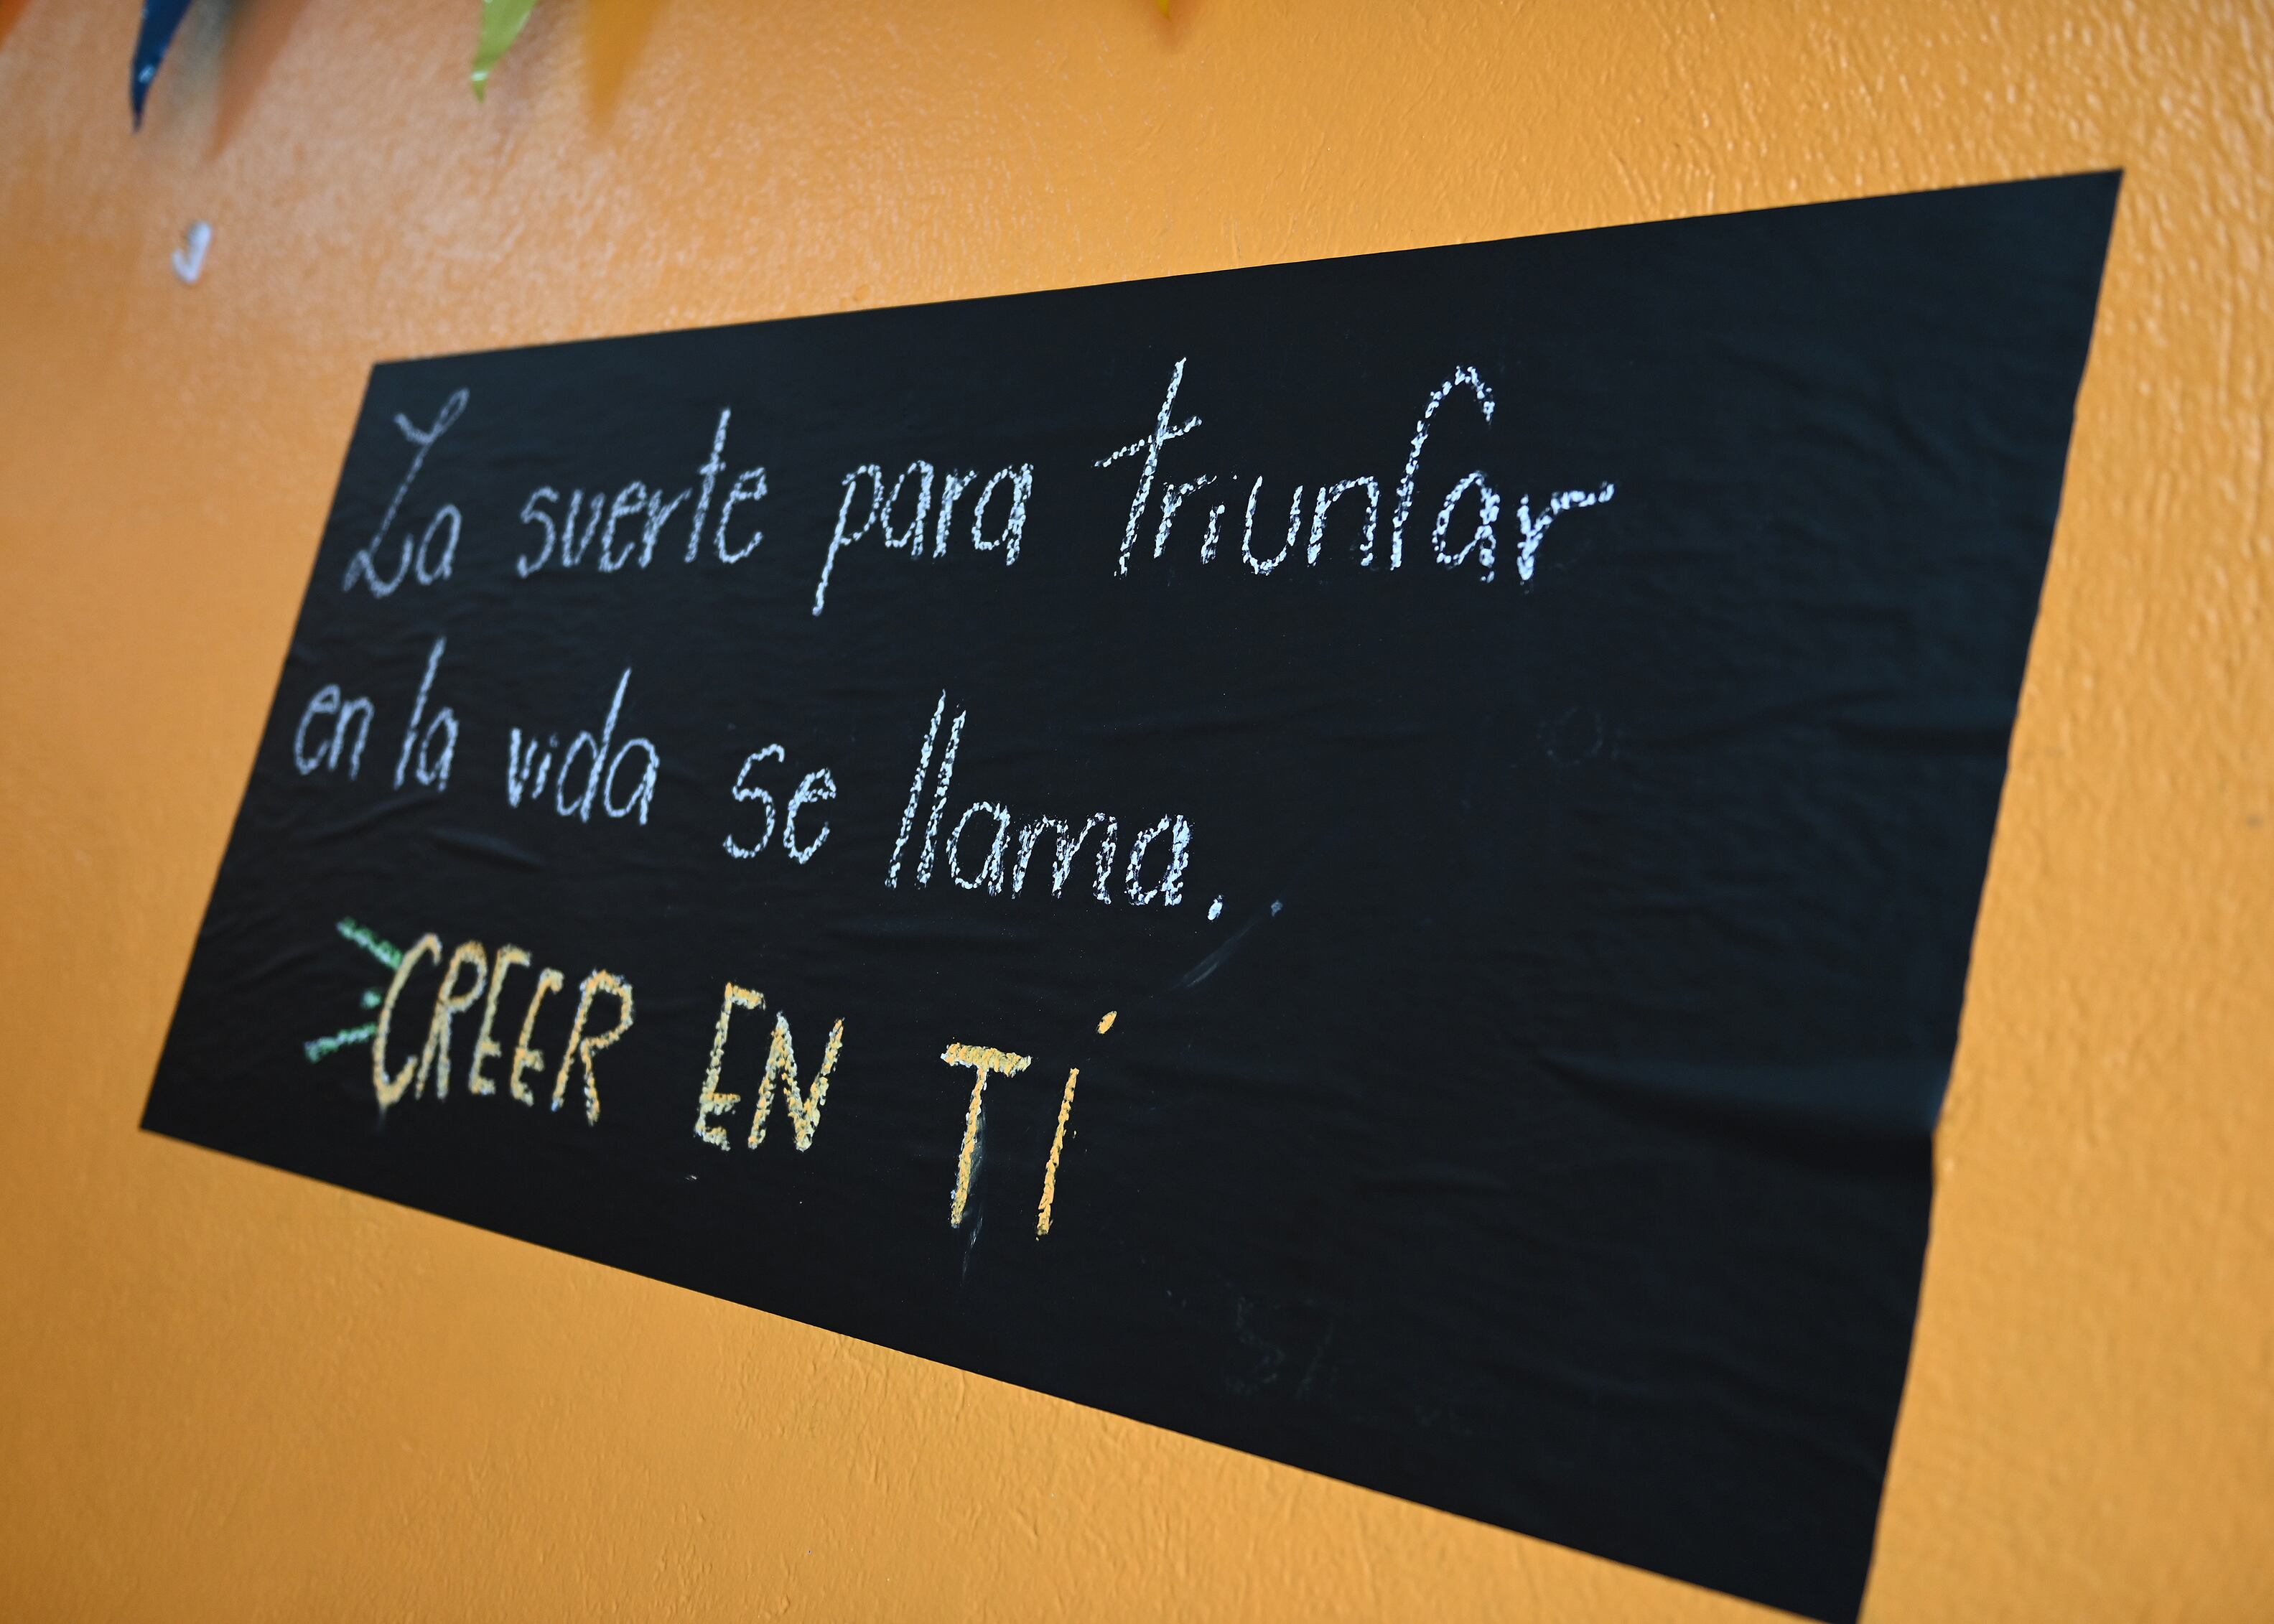 La suerte para triunfar
en la vida se llama..
CREER EN TÍ